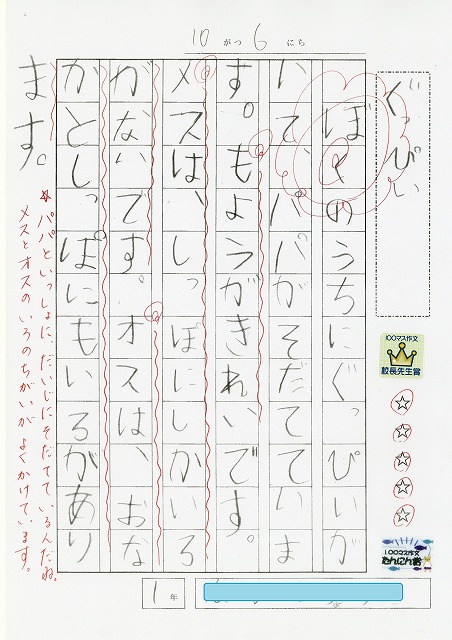 10 がつ 6 にち
ぐっぴい
ぼくのうちにぐっぴいが
いて、パパがそだてていま
す。もようがきれいです。
メスは、しっぽにしかいろ
がないです。オスは、おな
かとしっぽにもいろがあり
ます。
☆パパといっしょに、だいじにそだてているんだね。
メスとオスのいろのちがいが よくかけています。
100マス作文
校長先生賞
100マス作文
たんにん賞
1年